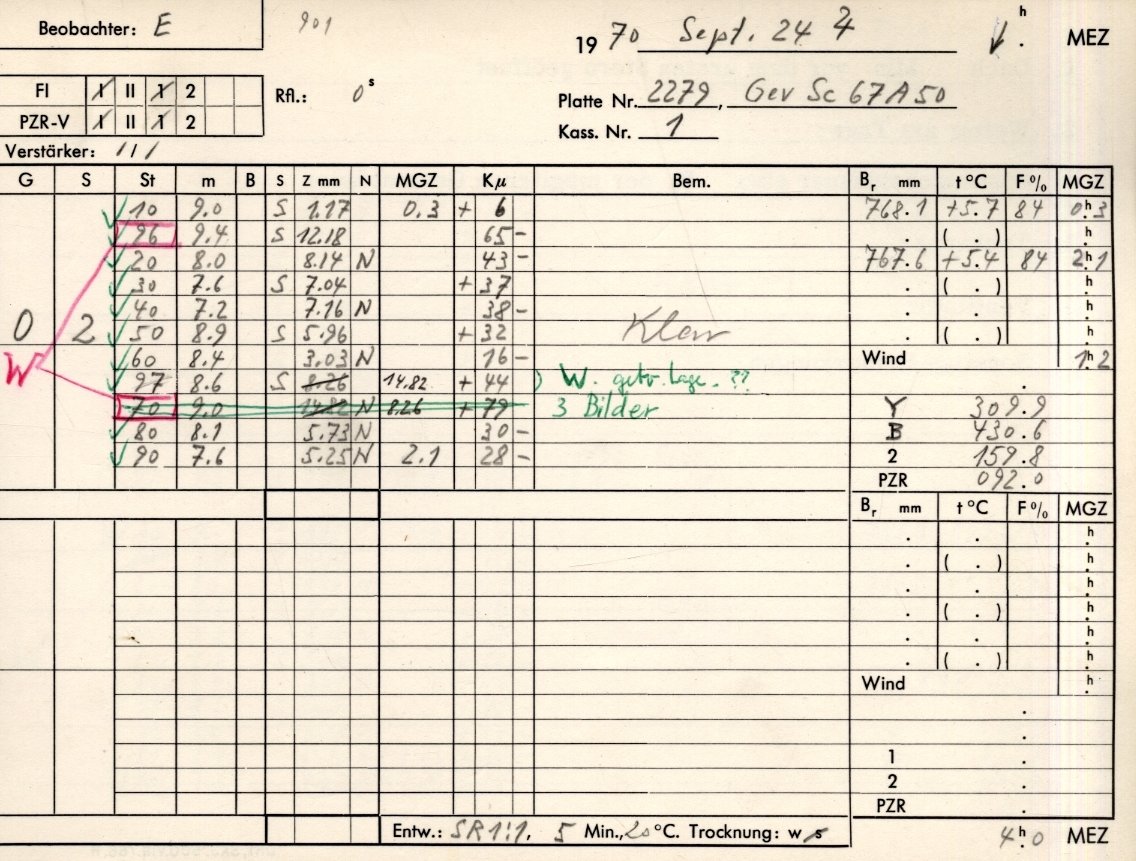 Beobachter: E 901 19 70 Sept. 24 h . MEZ
FI I II 1 2 Rfl.: 0 s Platte Nr. 2279, Gev Sc 67A50
PZR-V I II 1 2 Kass. Nr. 1
Verstärker: 111
G S St m B S Z mm N MGZ Kμ Bem. Br mm t °C F % MGZ
10 9.0 S 1.17 0.3 + 6 768.1 +5.7 84 0h.3
96 9.4 S 12.18 65 - . ( . ) h.
20 8.0 8.14 N 43 - 767.6 +5.4 84 2h.1
30 7.6 S 7.04 + 37 . ( . ) h.
40 7.2 7.16 N 38 - . . h.
0 2 50 8.9 S 5.96 + 32 Klar . ( . ) h.
W 60 8.4 3.03 N 16 - Wind 1h.2
97 8.6 S 8.26 14.82 + 44 ) W. getr. Lage. ?? .
70 9.0 14.82 N 8.26 + 79 3 Bilder Y 309.9
80 8.1 5.73 N 30 - B 430.6
90 7.6 5.25 N 2.1 28 - 2 159.8
PZR 092.0
Br mm t °C F % MGZ
. . h.
. ( . ) h.
. . h.
. ( . ) h.
. . h.
. ( . ) h.
Wind h.
.
.
1 .
2 .
PZR .
Entw.: SR 1:1, 5 Min., 20 °C. Trocknung: w s 4h.0 MEZ